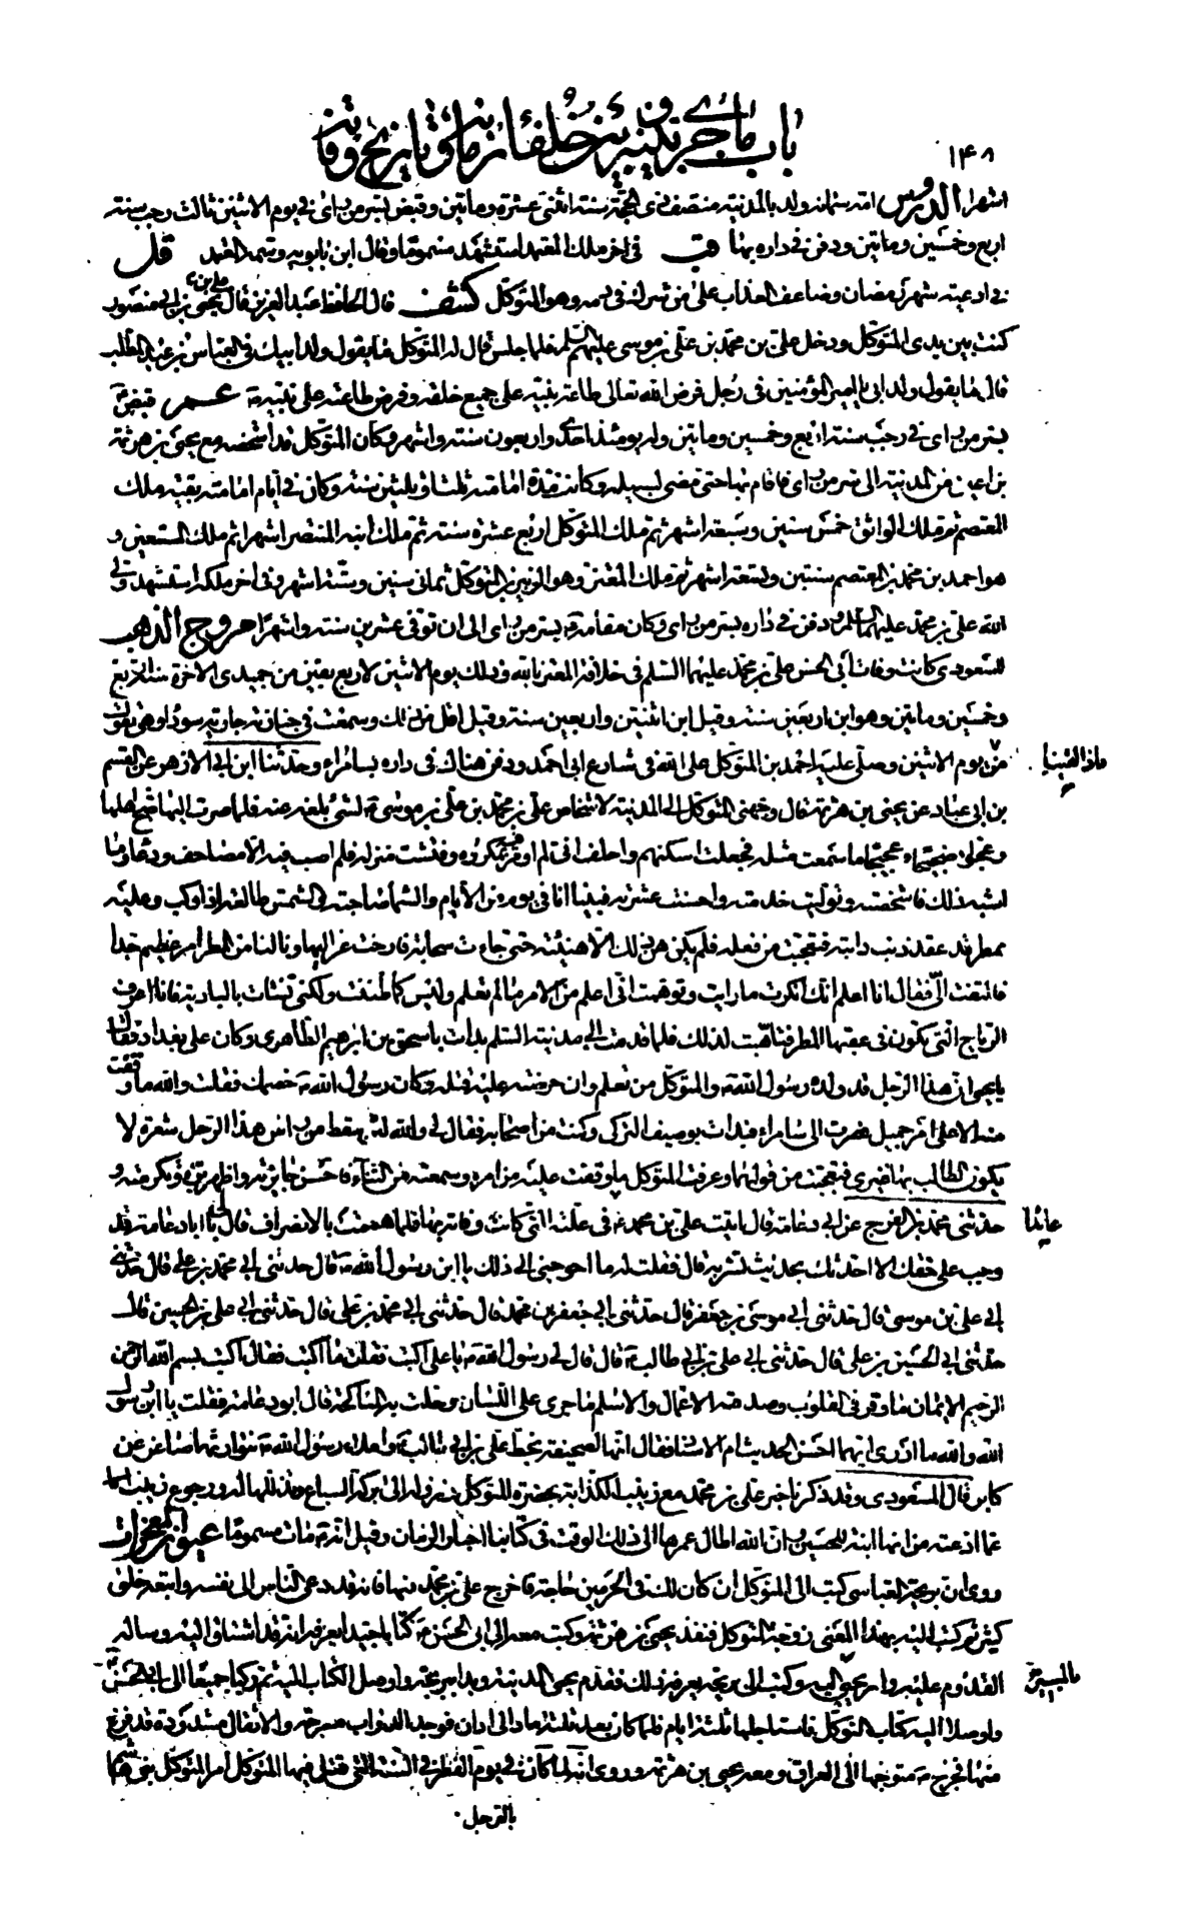 باب ما جرى بينه وبين خلفاء زمانه وتاريخ وفاته
١٤٨
اشهرا الدروس امه سمانة ولد بالمدينة منتصف ذي الحجة سنة اثنتي عشرة ومأتين وقبض بسر من راى في يوم الاثنين ثالث رجب سنة
اربع وخمسين ومأتين ودفن في داره بها قب في اخر ملك المعتمد استشهد مسموما وقال ابن بابويه وسمه المعتمد قل
في ادعية شهر رمضان وضاعف العذاب على من شرك في دمه وهو المتوكل كشف قال الحافظ عبد العزيز قال علي بن يحيى بن ابي منصور
كنت بين يدى المتوكل ودخل علي بن محمد بن علي بن موسى عليهم السلم فلما جلس قال له المتوكل ما يقول ولد ابيك في العباس بن عبد المطلب
قال ما يقول ولد ابي يا امير المؤمنين في رجل فرض الله تعالى طاعة نبيه على جميع خلقه وفرض طاعته على نبيه عم قبض
بسر من راى في رجب سنة اربع وخمسين ومأتين وله يومئذ احدى واربعون سنة واشهر وكان المتوكل قد اشخصه مع يحيى بن هرثمة
بن اعين من المدينة الى سر من راى فاقام بها حتى مضى لسبيله وكانت مدة امامته ثلثا وثلثين سنة وكان في ايام امامته بقية ملك
المعتصم ثم ملك الواثق خمس سنين وسبعة اشهر ثم ملك المتوكل اربع عشرة سنة ثم ملك ابنه المنتصر اشهرا ثم ملك المستعين و
هو احمد بن محمد بن المعتصم سنتين وتسعة اشهر ثم ملك المعتز وهو الزبير بن المتوكل ثماني سنين وستة اشهر وفي اخر ملكه استشهد ولي
الله علي بن محمد عليهما السلم ودفن في داره بسر من راى وكان مقامه بسر من راى الى ان توفى عشرين سنة واشهرا مروج الذهب
للمسعودى كانت وفاة ابي الحسن علي بن محمد عليهما السلم في خلافة المعتز بالله وذلك يوم الاثنين لاربع بقين من جميدى الاخرة سنة اربع
وخمسين ومأتين وهو ابن اربعين سنة وقيل ابن اثنتين واربعين سنة وقيل اقل من ذلك وسمعت في جنازته جارية سوداء وهي تقول
ماذا لقينا
من يوم الاثنين وصلى عليه احمد بن المتوكل على الله في شارع ابي احمد ودفن هناك في داره بسامراء وحدثنا ابن ابي الازهر عن القسم
بن ابي عباد عن يحيى بن هرثمة قال وجهني المتوكل الى المدينة لاشخاص علي بن محمد بن علي بن موسى لشئ بلغه عنه فلما صرت اليها ضج اهلها
وعجوا ضجيجا وعجيجا ما سمعت مثله فجعلت اسكنهم واحلف اني لم اومر فيه بمكروه وفتشت منزله فلم اصب فيه الا مصاحف ودعاء وما
اشبه ذلك فاشخصته وتوليت خدمته واحسنت عشرته فبينا انا في يوم من الايام والسماء صاحية والشمس طالعة اذا ركب وعليه
ممطر قد عقد ذنب دابته فتعجبت من فعله فلم يكن من ذلك الا هنيئة حتى جاءت سحابة فارخت عزاليها ونالنا من المطر امر عظيم جدا
فالتفت الي فقال انا اعلم انك انكرت ما رايت وتوهمت اني اعلم من الامر ما لم تعلم وليس كما ظننت ولكني نشأت بالبادية فانا اعرف
الرياح التي تكون في عقبها المطر فتاهبت لذلك فلما قدمت الى مدينة السلم بدأت باسحق بن ابرهيم الطاهرى وكان على بغداد فقال
يا يحيى ان هذا الرجل قد ولده رسول الله والمتوكل من تعلم وان حرضته عليه قتله وكان رسول الله خصمك فقلت والله ما وقفت
منه الا على امر جميل فصرت الى سامراء فبدأت بوصيف التركى وكنت من اصحابه فقال لي والله لئن سقط من راس هذا الرجل شعرة لا
يكون الطالب بها غيرى فتعجبت من قولهما وعرفت المتوكل ما وقفت عليه من امره وسمعته من الثناء فاحسن جايزته واظهر بره وتكرمته و
حدثني محمد بن الفرج عن ابي دعامة قال اتيت علي بن محمد في علته التي كانت وفاته بها فلما هممت بالانصراف قال لي يا ابا دعامة قد
عائدا
وجب علي حقك الا احدثك بحديث تسر به قال فقلت له ما احوجني الى ذلك يا ابن رسول الله قال حدثني ابي محمد بن علي قال حدثني
ابي علي بن موسى قال حدثني ابي موسى بن جعفر قال حدثني ابي جعفر بن محمد قال حدثني ابي محمد بن علي قال حدثني ابي علي بن الحسين قال
حدثني ابي الحسين بن علي قال حدثني ابي علي بن ابي طالب قال قال لي رسول الله يا علي اكتب فقلت ما اكتب فقال اكتب بسم الله الرحمن
الرحيم الايمان ما وقر في القلوب وصدقته الاعمال والاسلم ما جرى على اللسان وحلت به المناكحة قال ابو دعامة فقلت يا ابن رسول
الله والله ما ادرى ايهما احسن الحديث ام الاسناد فقال انها لصحيفة بخط علي بن ابي طالب واملاء رسول الله نتوارثها صاغر عن
كابر قال المسعودى وقد ذكرنا خبر علي بن محمد مع زينب الكذابة بحضرة المتوكل ونزوله الى بركة السباع وتذللها له ورجوع زينب
عما ادعته من انها ابنة للحسين وان الله اطال عمرها الى ذلك الوقت في كتابنا اخبار الزمان وقيل انه مات مسموما عيون المعجزات
روى ان بريحة العباسى كتب الى المتوكل ان كان لك في الحرمين حاجة فاخرج علي بن محمد منها فانه قد دعى الناس الى نفسه واتبعه خلق
كثير ثم كتب اليه بهذا المعنى زوجة المتوكل فنفذ يحيى بن هرثمة وكتب معه الى ابي الحسن كتابا جيدا يعرفه انه قد اشتاق اليه وساله
القدوم عليه وامر يحيى اليه وكتب الى بريحة يعرفه ذلك فقدم يحيى المدينة وبدا ببريحة واوصل الكتاب اليه ثم ركبا جميعا الى ابي الحسن
بالمسير
واوصلا اليه كتاب المتوكل فاستاجلهما ثلثة ايام فلما كان بعد ثلثة عاد الى داره فوجد الدواب مسرجة والاثقال مشدودة قد فرغ
منها فخرج متوجها الى العراق ومعه يحيى بن هرثمة وروى انه لما كان في يوم الفطر في السنة التي قتل فيها المتوكل امر المتوكل بني هاشم
بالترجل